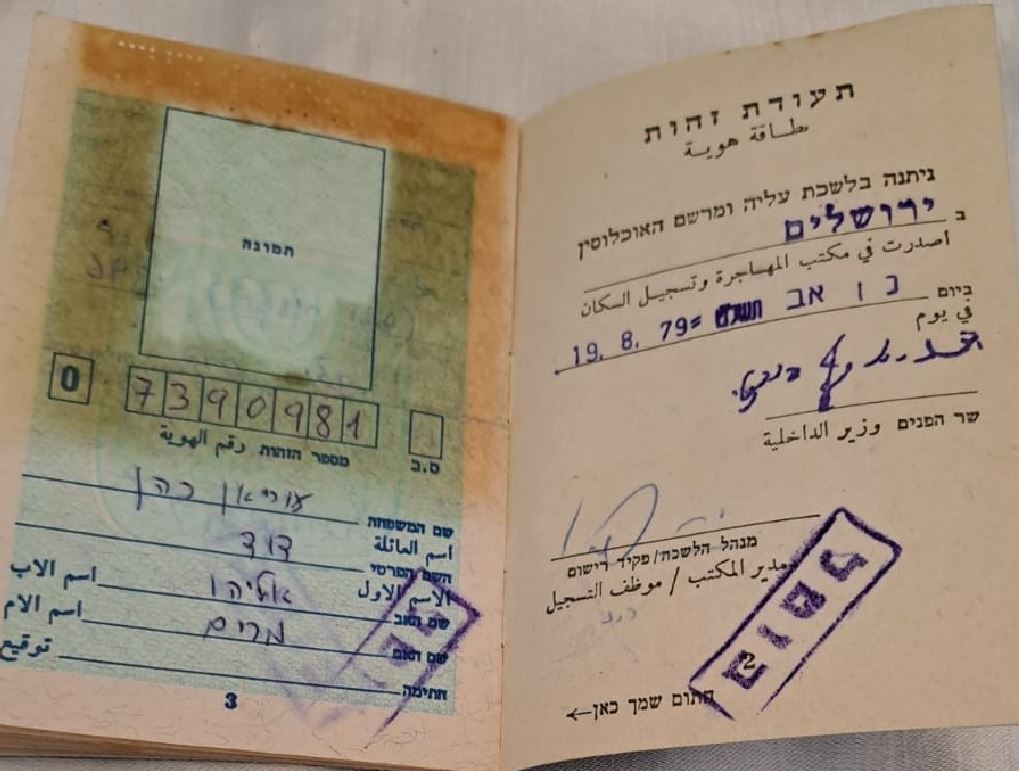 תעודת זהות
بطاقة هوية
ניתנה בלשכת עליה ומרשם האוכלוסין
ב ירושלים
اصدرت في مكتب المهاجرة وتسجيل السكان
ביום כו אב תשל"ט = 19.8.79
في يوم
שר הפנים وزير الداخلية
מנהל הלשכה/פקיד רישום
مدير المكتب / موظف التسجيل
2
חתום שמך כאן←
תמונה
0 7390981
ס.ב מספר הזהות رقم الهوية
שם המשפחה כהן
اسم العائلة
השם הפרטי דוד
الاسم الاول
שם האב אליהו اسم الاب
שם האם מרים اسم الام
חתימה توقيع
3